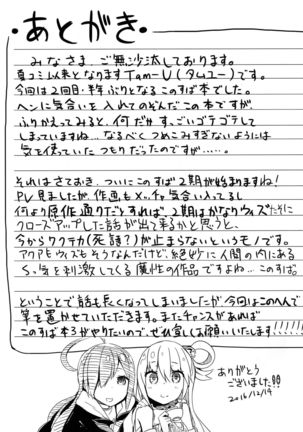 ・あとがき・
みなさま、ご無沙汰しております。
夏コミ以来となりますTam-U(タムユー)です。
今回は2回目・半年ぶりとなるこのすば本でした。
ヘンに気合いを入れてのぞんだこの本ですが、
ふりかえってみると、何だかすごいゴテゴテして
しまっていますね…なるべくつめこみすぎないようには
気を使っていたつもりだったのですが……。
それはさておき、ついにこのすば2期が始まりますね!
PV見ましたが作画もメッチャ気合い入ってるし
何より原作通りだとすれば、2期はかなりウィズだそに
クローズアップした話が出て来るかと思うと、
今からワクテカ(死語?)が止まらないというモノです。
アクアもウィズもそうなんだけど、絶妙に人間の内にある
S・気を刺激してくる魔性の作品ですよね…このすば。
ということで話も長くなってしまいましたが今回はこのへんで
筆を置かせていただきます。またチャンスがあれば
このすば本3がやりたいので、ぜひ宜しくお願いいたします!!!!
ありがとう
ございました!!
2016/12/14